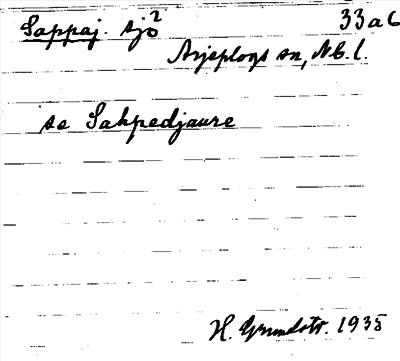 Sappaj. sjö 2 33aC
Arjeplogs sn, Nb. l.
se Sahpedjaure
H. Grundstr. 1935